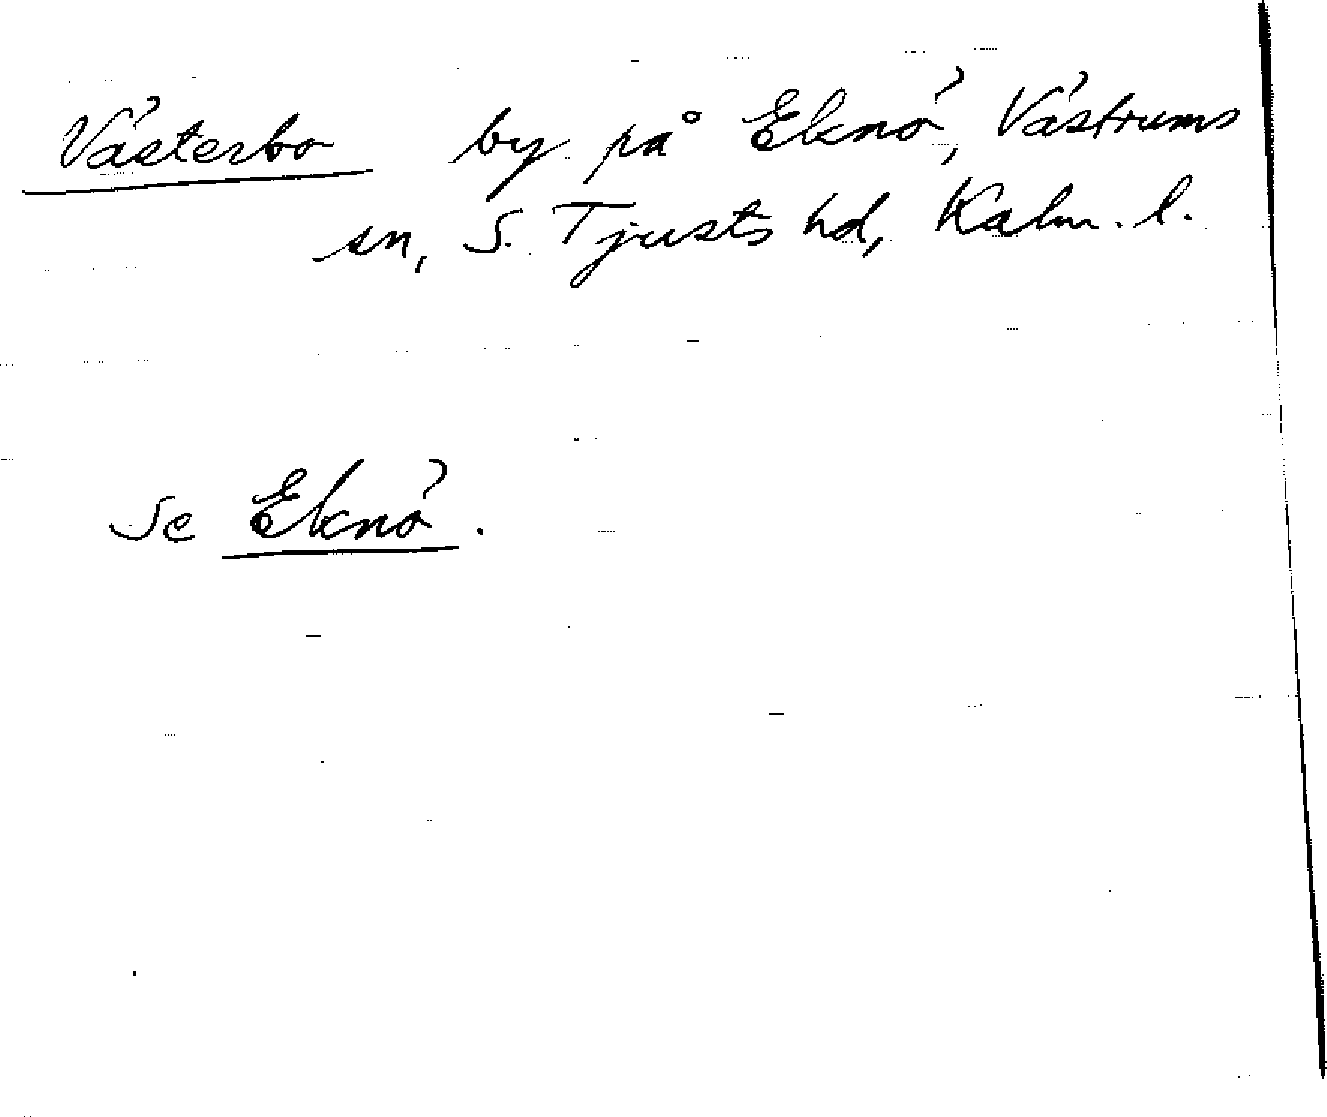 Västerbo by på Eknö, Västrums
sn, S. Tjusts hd, Kalm. l.
se Eknö.